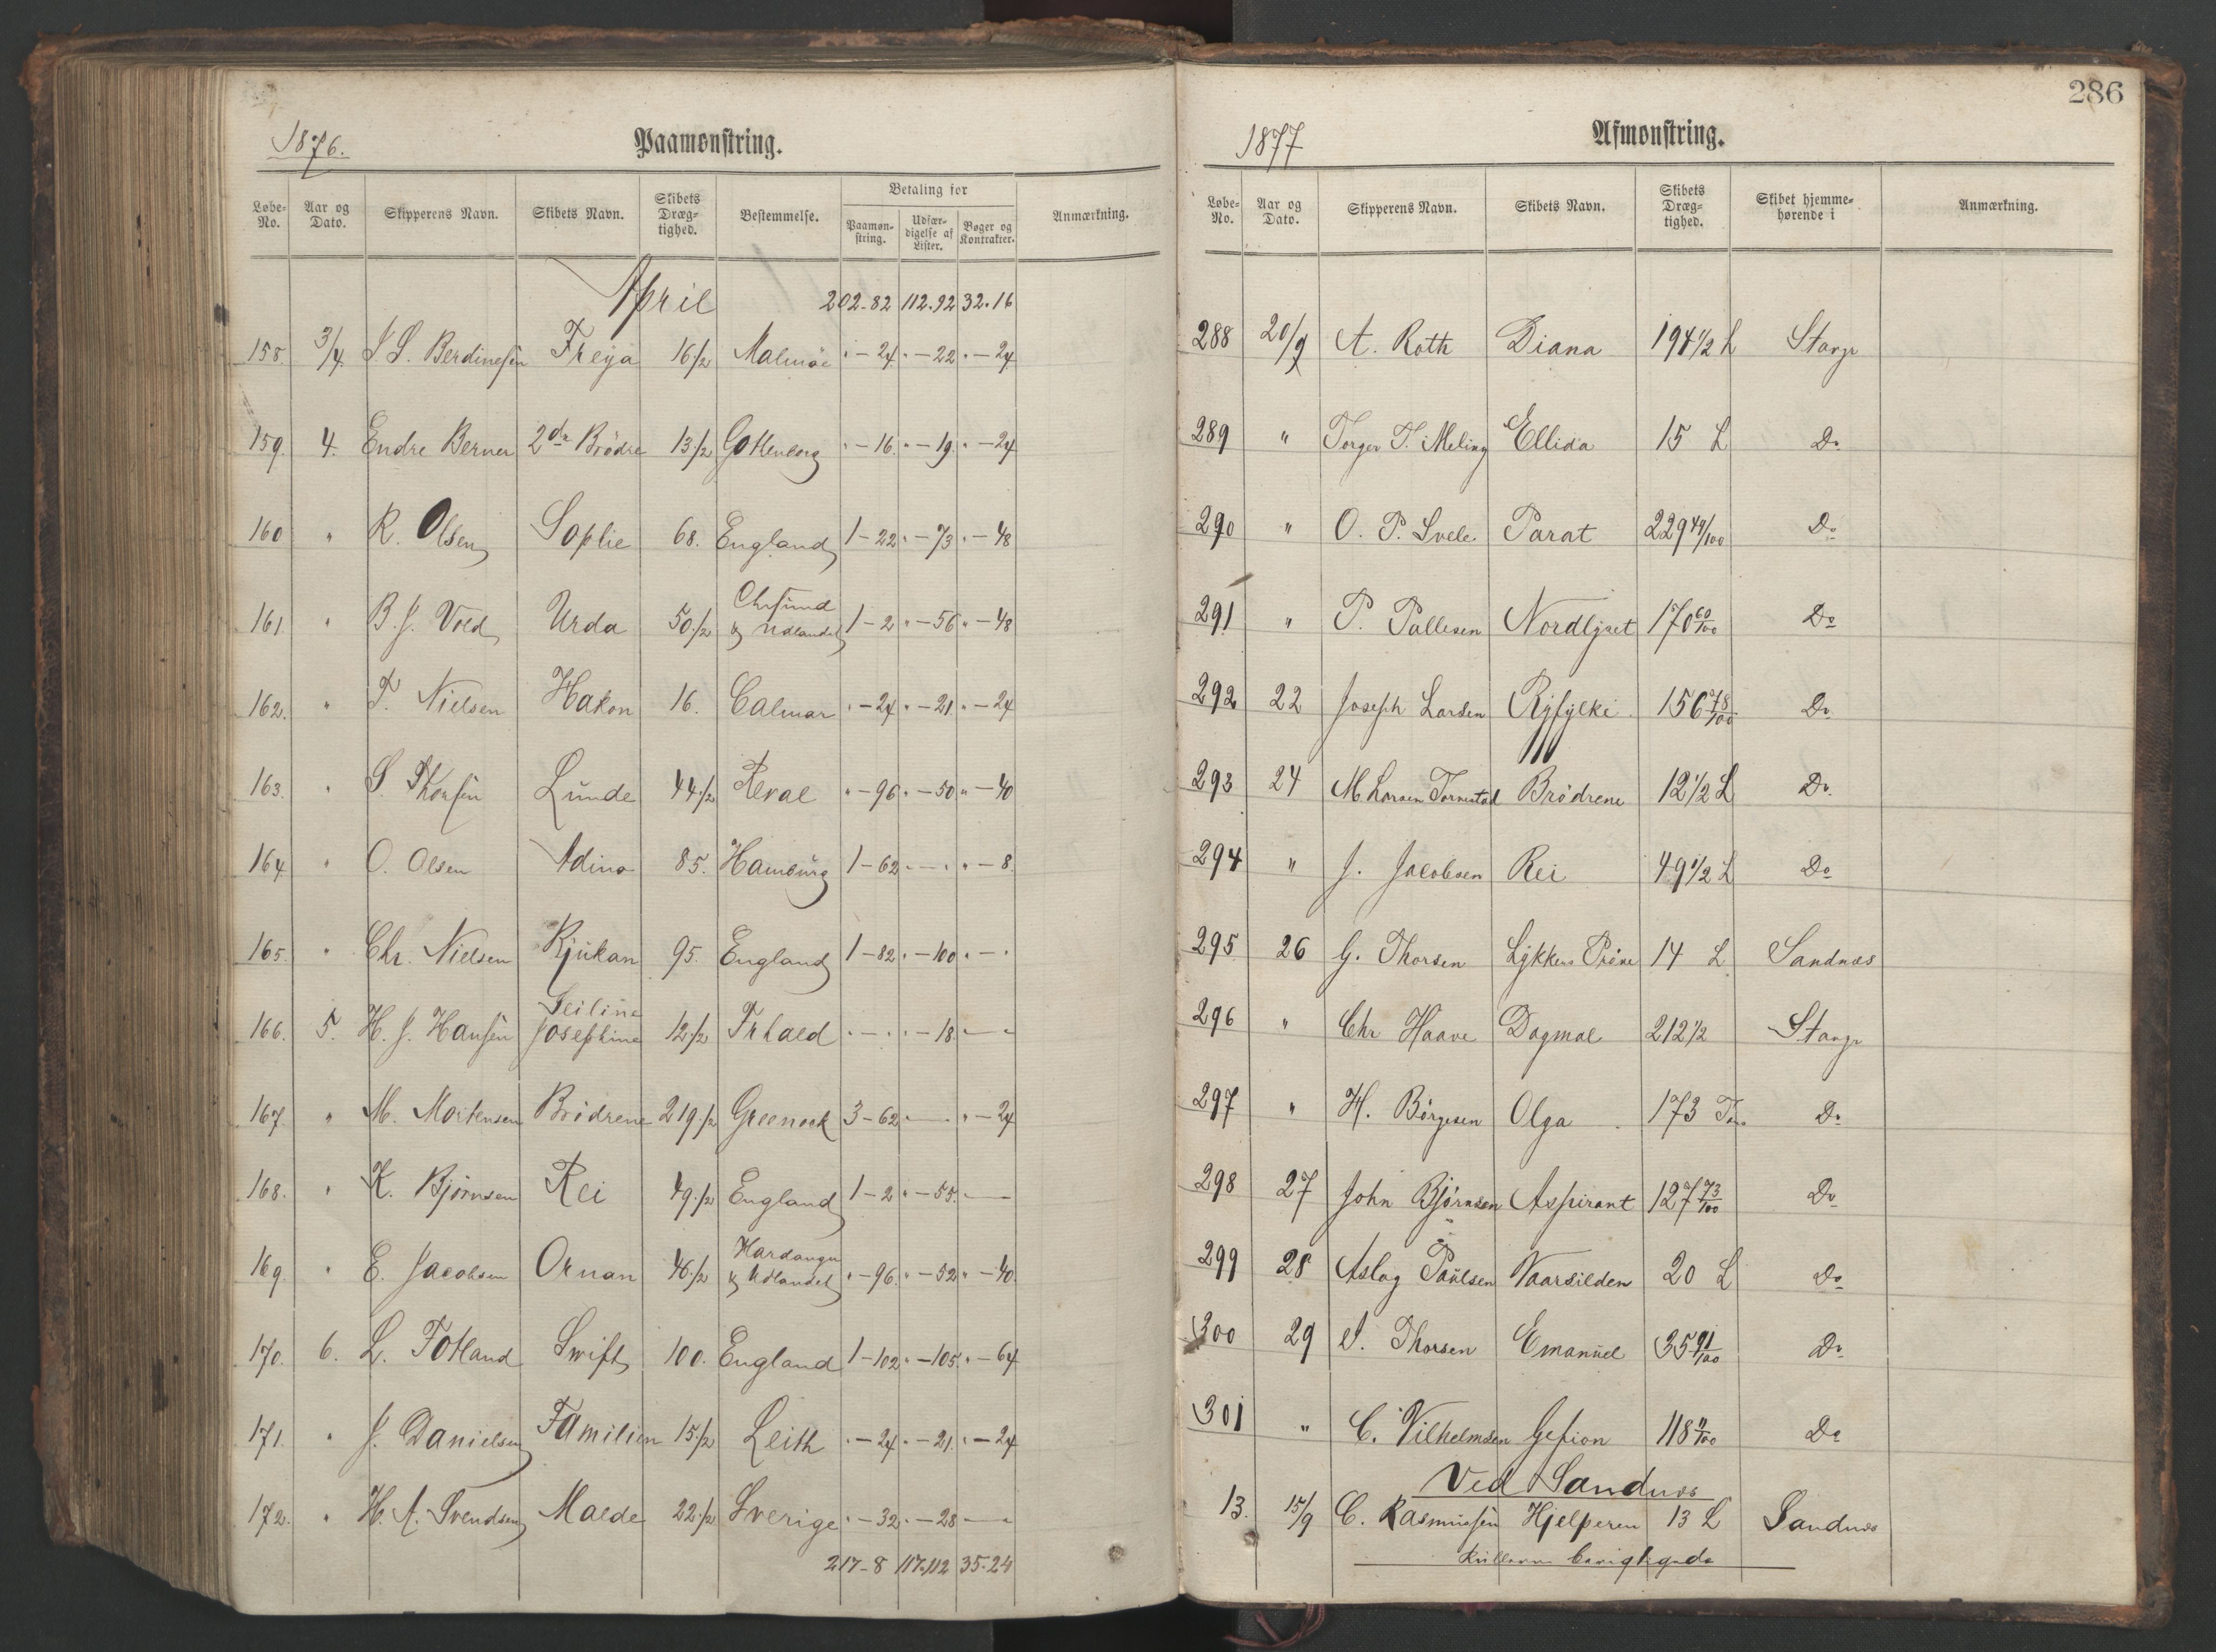 1876.
Paamønstring.
Løbe-No. Aar og Dato. Skipperens Navn. Skibets Navn. Skibets Dræg-tighed. Bestemmelse. Betaling for Paamøn-string. Udfær-digelse af Lister. Bøger og Kontrakter. Anmærkning.
April 202-82 112.92 32.16
158. 3/4 Freya 16 1/2 Malmöe " - 24 " - 22 " - 24
159. 4. Endre Berner 2de Brödre 13 1/2 Gottenborg " - 16. " - 19. " - 24
160 " R. Olsen Sophie 68. England 1 - 22 " - 73 " - 48
161. " B. J. Vold Urda 50 1/2 Chrsund & Udlandet 1 - 2 " - 56 " - 48
162. " T. Nielsen Hakon 16. Calmar " - 24 " - 21 " - 24
163. " S. Thorsen Lunde 44 1/2 Reval " - 96 " - 50 " - 40
164 " O. Olsen Adino 85. Hamburg 1 - 62 " - " " - 8.
165. " Chr. Nielsen Rjukan 95. England 1 - 82 " - 100 " - "
166. 5. H. J. Hansen Josephine 12 1/2 Frhald " - " " - 18 " - "
167. " M. Mortensen Brödrene 219 1/2 Greenock 3 - 62 " - " " - 24
168. " K. Björnsen Rei 49 1/2 England 1 - 2 " - 55. " - "
169. " E. Jacobsen Ornan 46 1/2 Hardanger & Udlandet " - 96. " - 52 " - 40.
170. 6. L. Totland Swift 100. England 1 - 102 " - 105. " - 64
171. " J. Danielsen Familien 15 1/2 Leith " - 24 " - 21. " - 24
172. " H. A. Svendsen Malde 22 1/2 Sverige " - 32 " - 28 " - "
217-8 117.112 35.24
286
1877
Afmønstring.
Løbe-No. Aar og Dato. Skipperens Navn. Skibets Navn. Skibets Dræg-tighed. Skibet hjemme-hørende i Anmærkning.
288 20/9 A. Roth Diana 194 1/2 L Stavgr
289 " Torger T. Meling Ellida 15 L Do
290 " O. P. Svele Parat 229 49/100 Do
291 " P. Pallesen Nordlyset 170 60/100 Do
292 22 Joseph Larsen Ryfylke 156 78/100 Do
293 24 M Larsen Tornstad Brödrene 12 1/2 L Do
294 " J. Jacobsen Rei 49 1/2 L Do
295 26 G. Thorsen Lykkens Pröve 14 L Sandnes
296 " Chr Haave Dagmal 212 1/2 Stavgr
297 " H. Börgesen Olga 173 Do
298 27 John Björnsen Aspirant 127 73/100 Do
299 28 Aslag Paulsen Vaarsilden 20 L Do
300 29 S. Thorsen Emanuel 35 91/100 Do
301 " C. Vilhelmsen Gefion Do
Ved Sandnes
13. 15/9 C. Rasmussen Hjelperen 13 L Sandnes